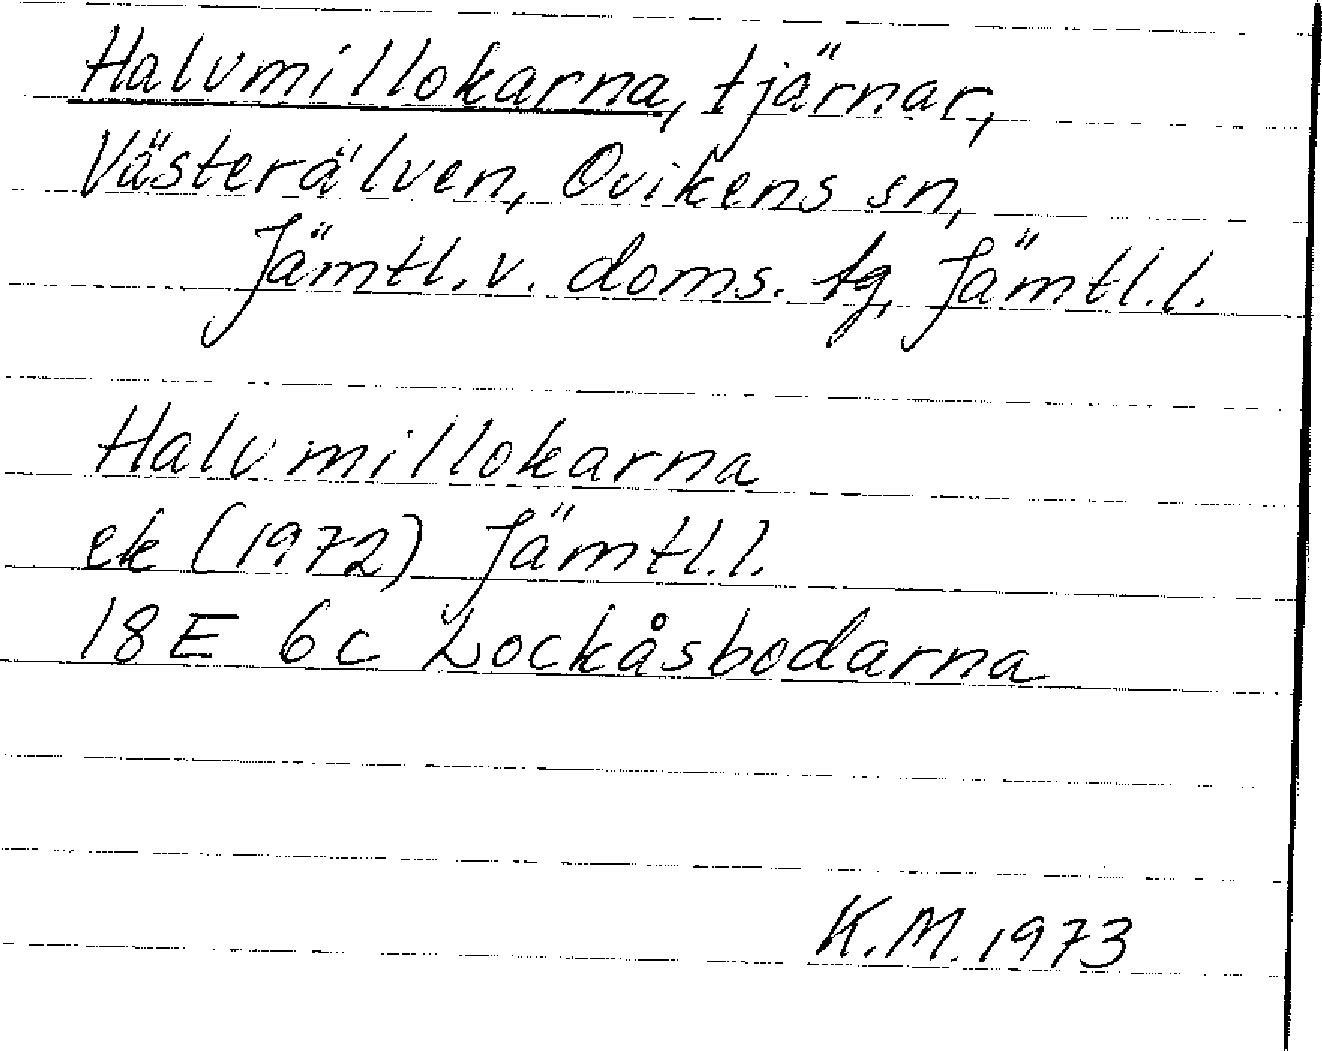 Halvmillokarna, tjärnar,
Västerälven, Ovikens sn,
Jämtl. v. doms. tg, Jämtl. l.
Halvmillokarna
ek (1972) Jämtl. l.
18 E 6c Lockåsbodarna
K.M. 1973